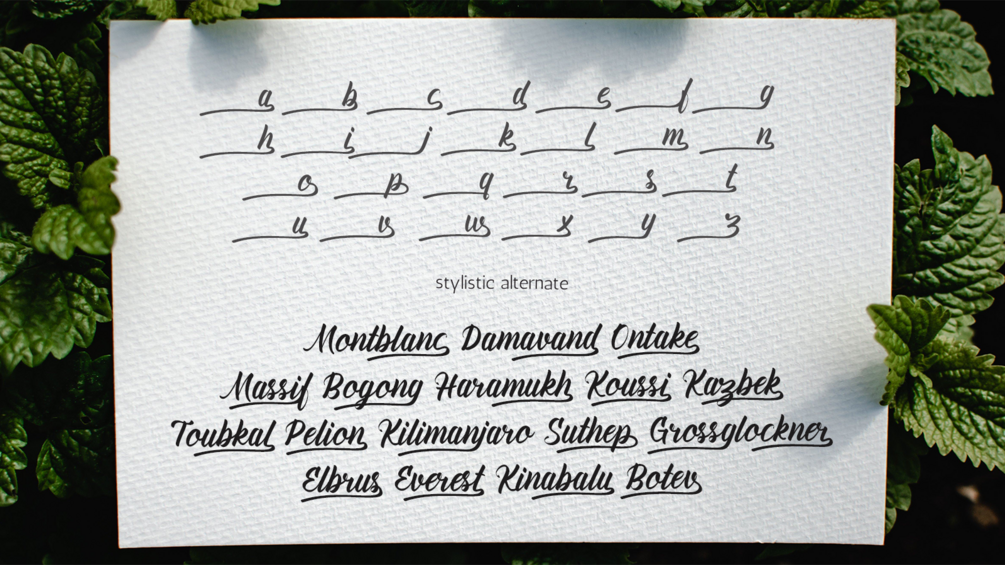 a b c d e f g
h i j k l m n
o p q r s t
u v w x y z
stylistic alternate
Montblanc Damavand Ontake
Massif Bogong Haramukh Koussi Kazbek
Toubkal Pelion Kilimanjaro Suthep Grossglockner
Elbrus Everest Kinabalu Botev